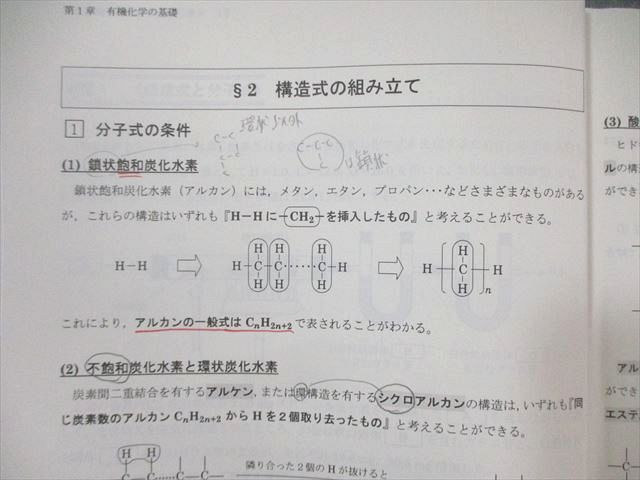 第1章 有機化学の基礎
§2 構造式の組み立て
1 分子式の条件
環状以外
C-C-C
C
は鎖状
(1) 鎖状飽和炭化水素
鎖状飽和炭化水素（アルカン）には，メタン，エタン，プロパン…などさまざまなものがある
が，これらの構造はいずれも『H－Hに－CH2－を挿入したもの』と考えることができる。
H－H ⇨ H－C－C－……－C－H ⇨ H－[C]－H n
これにより，アルカンの一般式はCnH2n+2で表されることがわかる。
(2) 不飽和炭化水素と環状炭化水素
炭素間二重結合を有するアルケン，または環構造を有するシクロアルカンの構造は，いずれも『同
じ炭素数のアルカン CnH2n+2 から H を2個取り去ったもの』と考えることができる。
H H
隣り合った2個の H が抜けると
(3) 酸
ヒド
ルの構造
ができ
アル
ができ
エステ